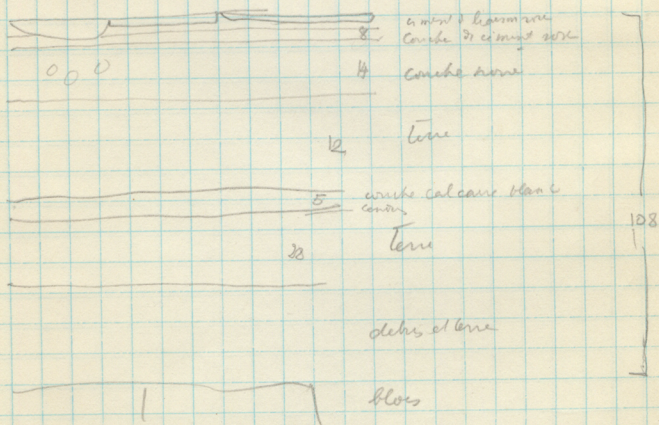 ciment
8 couche de ciment rose
14 couche noire
12 terre
5 couche calcaire blanc
28 Terre
108
debris et terre
blocs